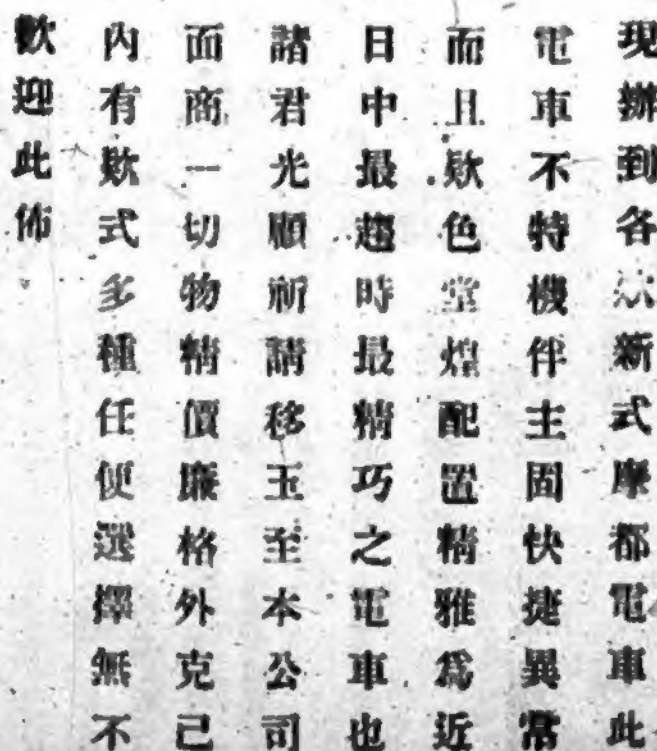 現辦到各欵新式摩都電車此
電車不特機件主固快捷異常
而且欵色堂煌配置精雅爲近
日中最趨時最精巧之電車也
諸君光顧祈請移玉至本公司
面商一切物精價廉格外克己
內有欵式多種任便選擇無不
歡迎此佈